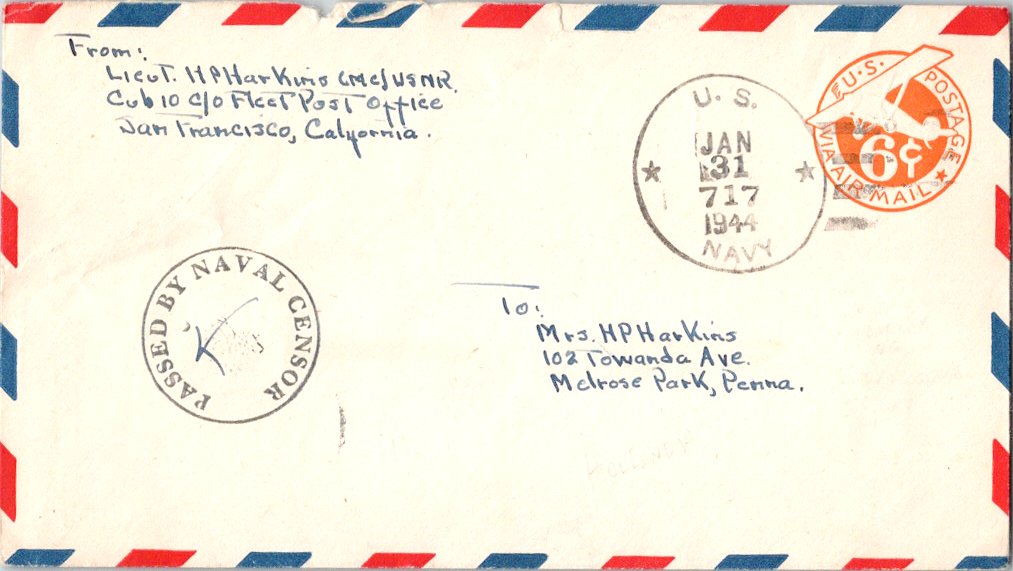 From:
Lieut. HPHarkins (MC) USNR.
Cub 10 c/o Fleet Post Office
San Francisco, California.
U.S.
JAN
31
717
1944
NAVY
U.S. POSTAGE
6¢
VIA AIR MAIL
PASSED BY NAVAL CENSOR
To:
Mrs. HPHarkins
102 Towanda Ave.
Melrose Park, Penna.